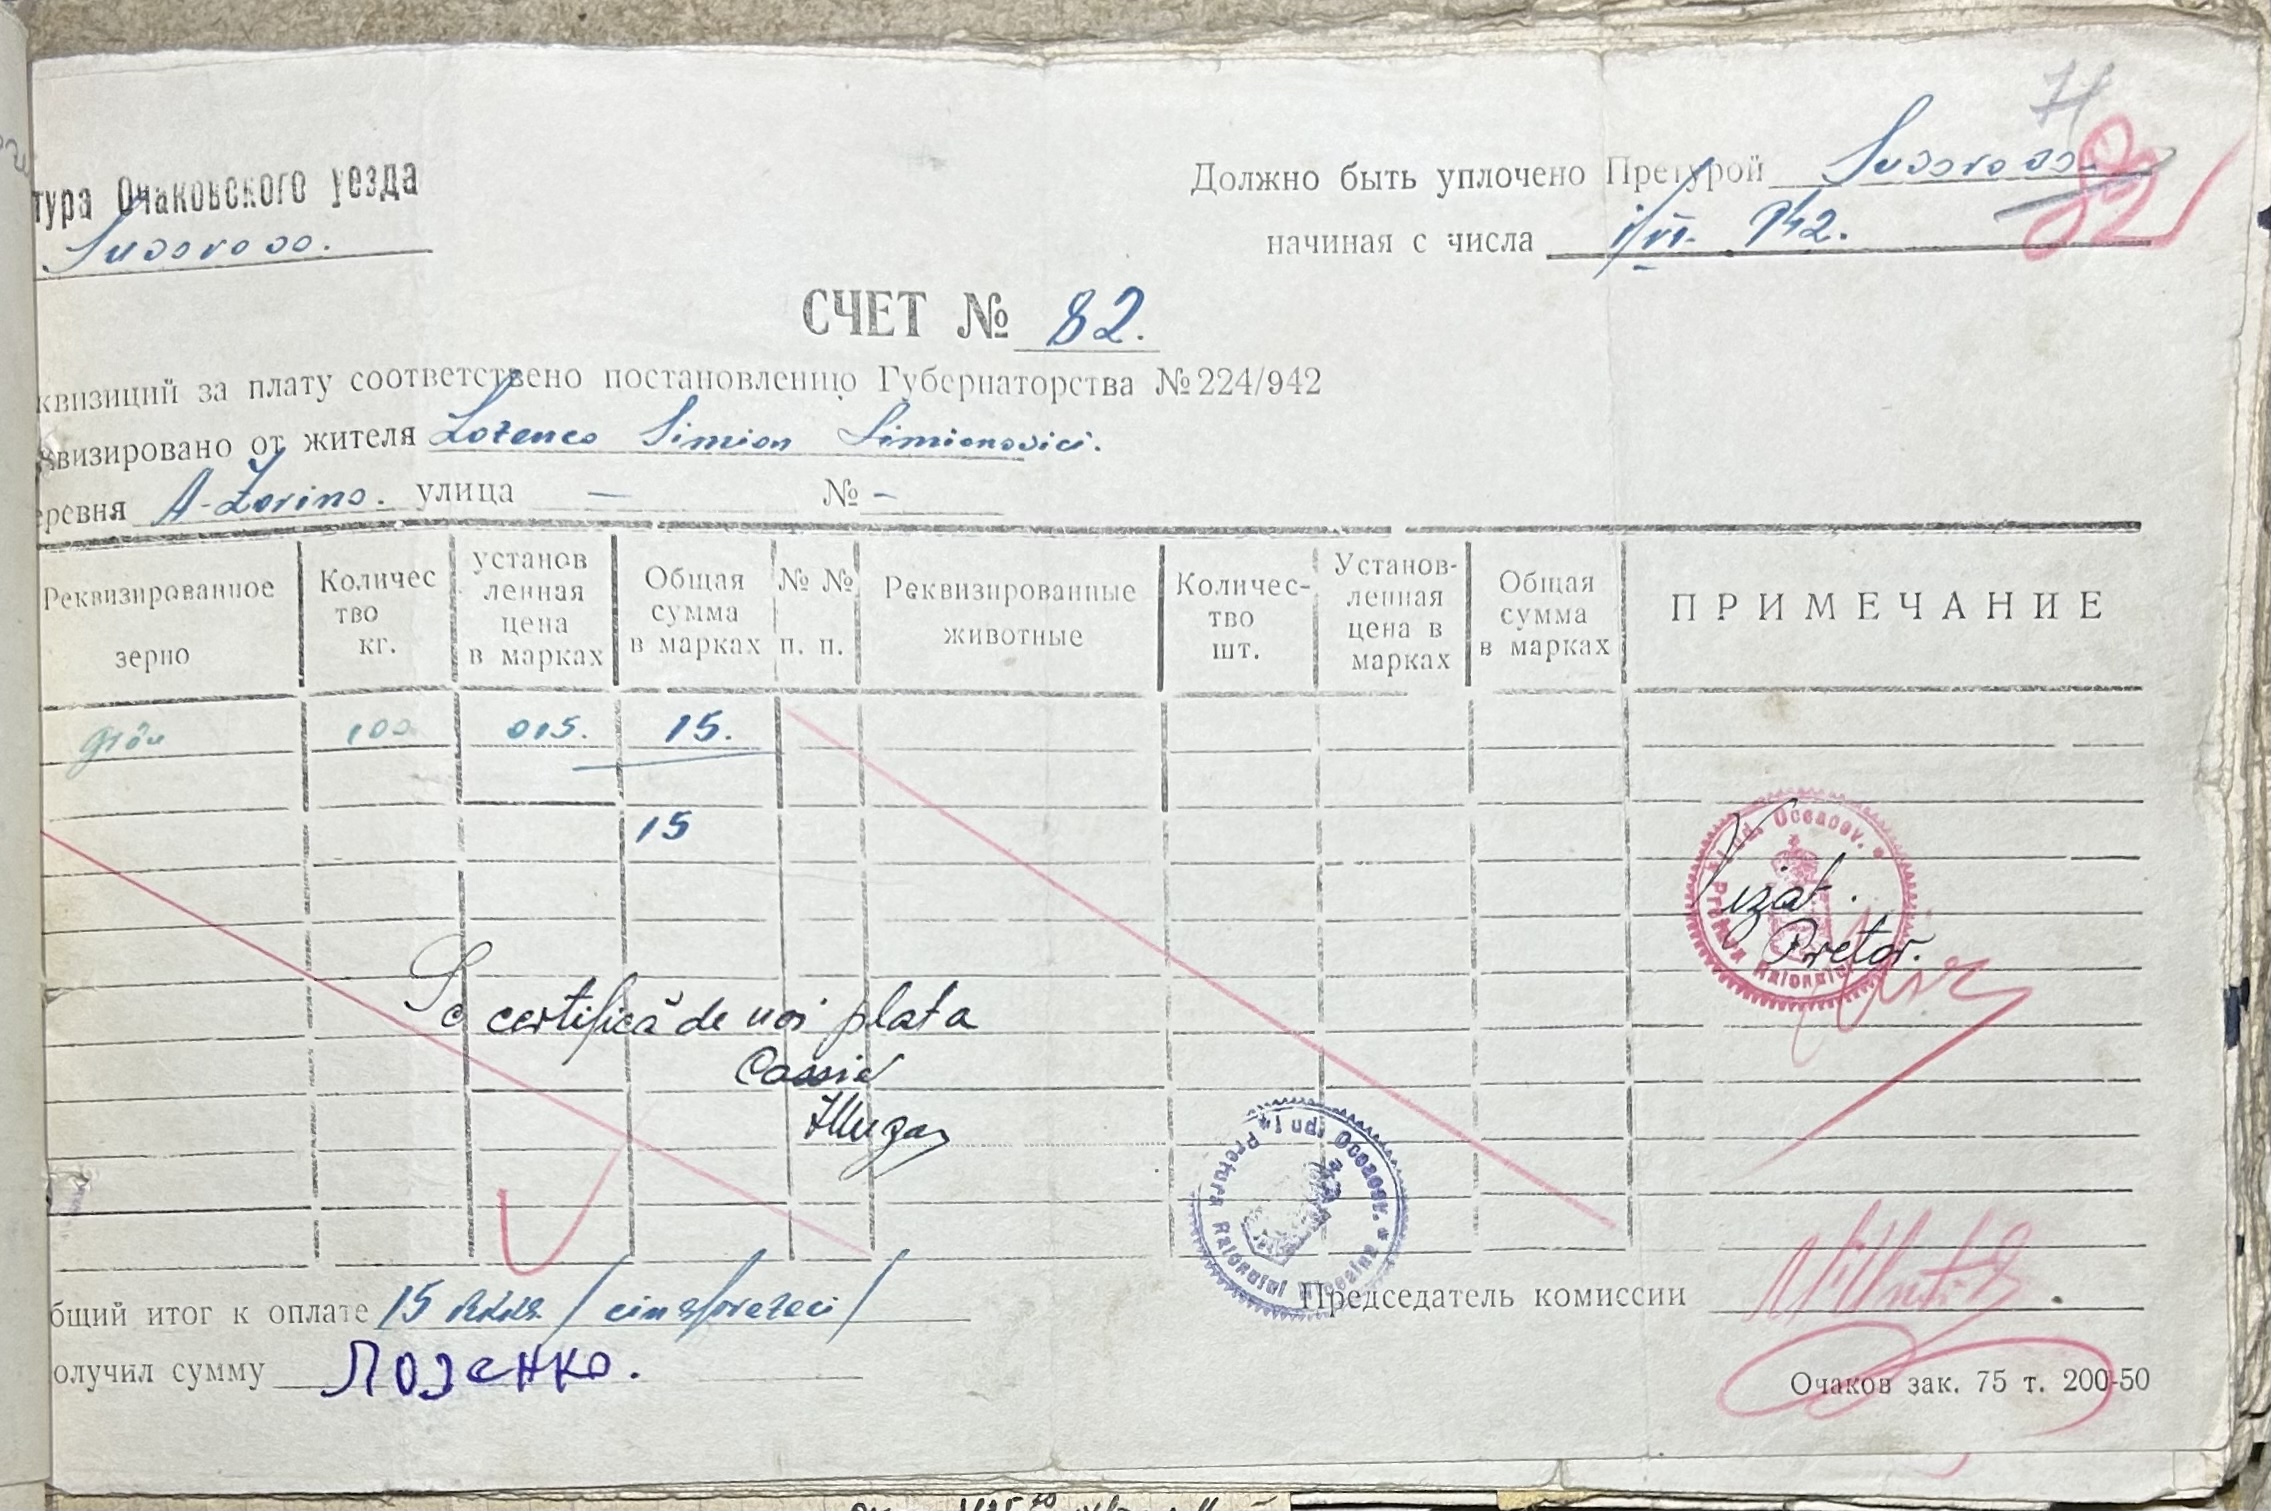 71
82
тура Очаковского уезда
Suvorovo.
Должно быть уплочено Претурой Suvorovo.
начиная с числа 1/VI. 942.
СЧЕТ № 82.
квизиций за плату соответствено постановлению Губернаторства №224/942
квизировано от жителя Lozenco Simion Simionovici.
еревня A-Zorino. улица — № –
Реквизированное зерно
Количес тво кг.
установ ленная цена в марках
Общая сумма в марках
№ № п. п.
Реквизированные животные
Количес- тво шт.
Установ- ленная цена в марках
Общая сумма в марках
ПРИМЕЧАНИЕ
grâu 100 015. 15.
15
Jud. Oceacov.
Pretura Raionului
Vizat.
Pretor.
Se certifică de noi plata
Casier
Jud. Oceacov.
Pretura Raionului
бщий итог к оплате 15 /cinsprezeci/
Председатель комиссии
олучил сумму Лозенко.
Очаков зак. 75 т. 200-50